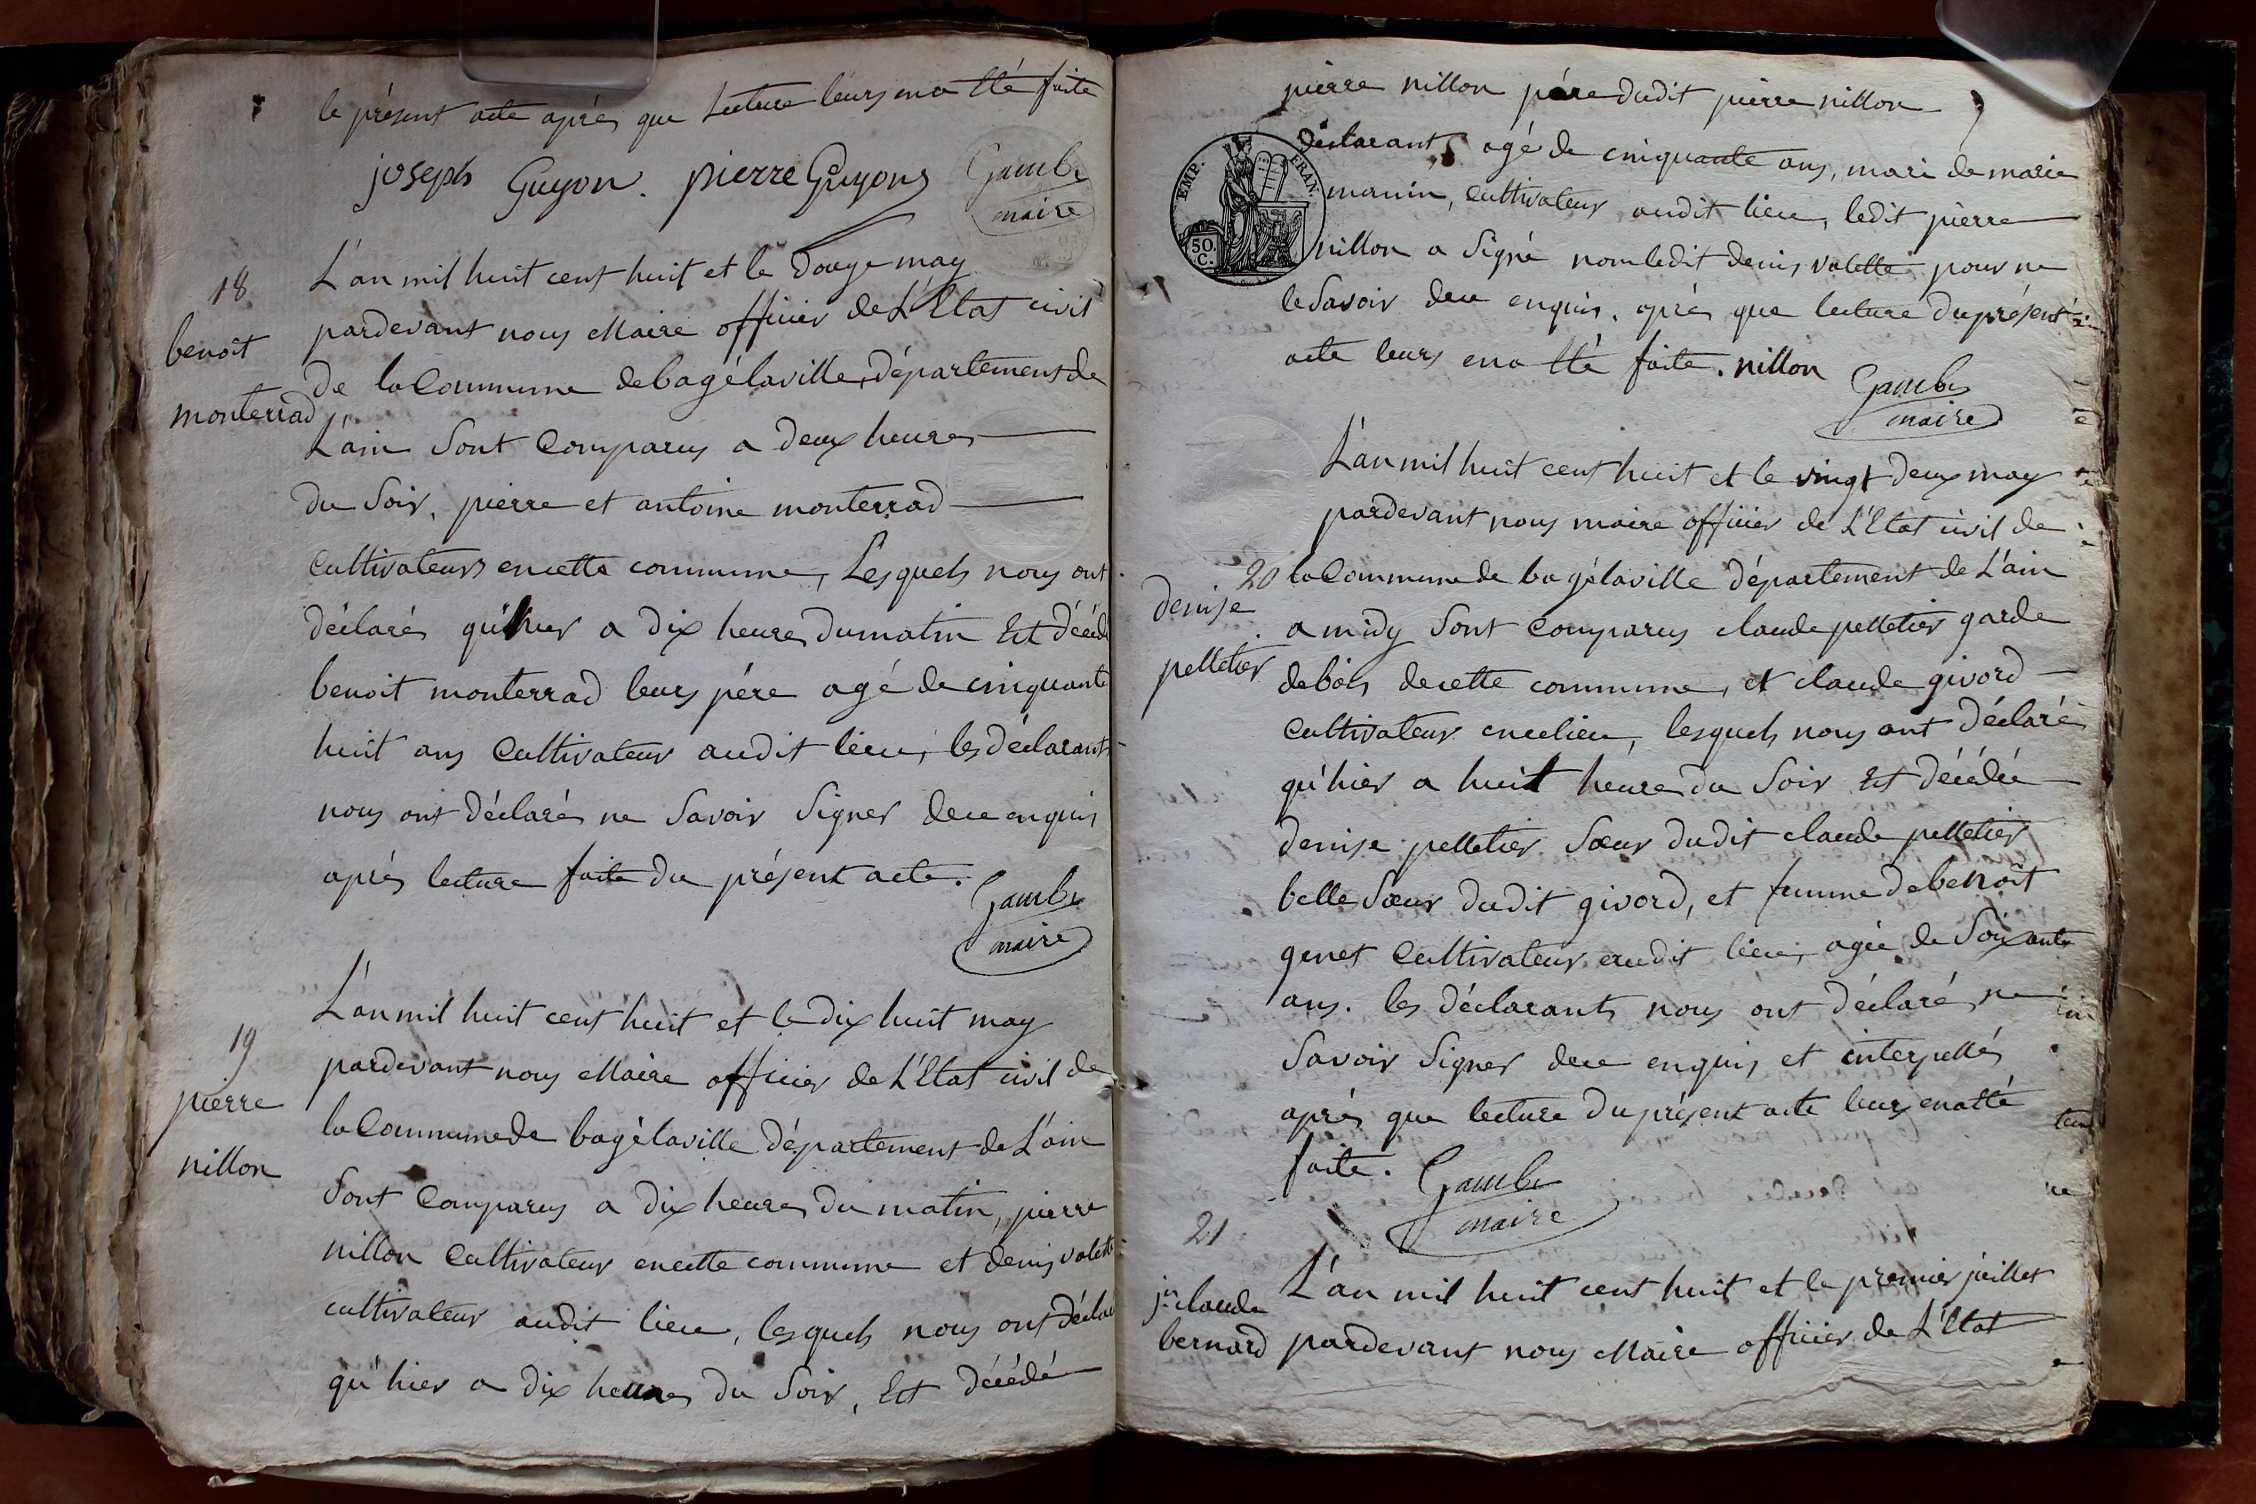 le présent acte après que lecture leurs en a été faite
joseph Guyon. pierre Guyon
Gambe
maire
18
benoit
monterrad
L'an mil huit cent huit et le douze may
pardevant nous Maire officier de L'Etat civil
de la Commune de bagélaville, département de
L'ain Sont Comparus a deux heures
du Soir, pierre et antoine monterrad
Cultivateurs en cette commune, Lesquels nous ont
déclarés qu'hier a dix heures du matin Est décédé
benoit monterrad leurs père agé de cinquante
huit ans Cultivateur audit lieu, les déclarants
nous ont déclarés ne Savoir Signer de ce enquis
après lecture faite du présent acte.
Gambe
maire
19
pierre
nillon
L'an mil huit cent huit et le dix huit may
pardevant nous Maire officier de L'Etat civil de
la Commune de bagélaville département de L'ain
Sont Comparus a dix heures du matin, pierre
nillon Cultivateur en cette commune et denis valette
cultivateur audit lieu, lesquels nous ont déclaré
qu'hier a dix heures du Soir, Est décédé
pierre nillon père dudit pierre nillon
EMP. FRAN.
50.
C.
déclarant, agé de cinquante ans, mari de marie
manin, Cultivateur audit lieu, ledit pierre
nillon a Signé non ledit denis valette pour ne
le Savoir de ce enquis. après que lecture du présent
acte leurs en a été faite. nillon
Gambe
maire
20
denise
pelletier
L'an mil huit cent huit et le vingt deux may
pardevant nous maire officier de L'Etat civil de
la Commune de bagélaville département de L'ain
a midy Sont Comparus claude pelletier garde
de bois de cette commune, et claude givord
Cultivateur en ce lieu, lesquels nous ont déclarés
qu'hier a huit heures du Soir Est décédée
denise pelletier Sœur dudit claude pelletier
belle Sœur dudit givord, et femme de benoit
genet Cultivateur audit lieu, agée de Soixante
ans. les déclarants nous ont déclarés ne
Savoir Signer de ce enquis et interpellés
après que lecture du présent acte leurs en a été
faite.
Gambe
maire
21
jn claude
bernard
L'an mil huit cent huit et le premier juillet
pardevant nous Maire officier de L'Etat